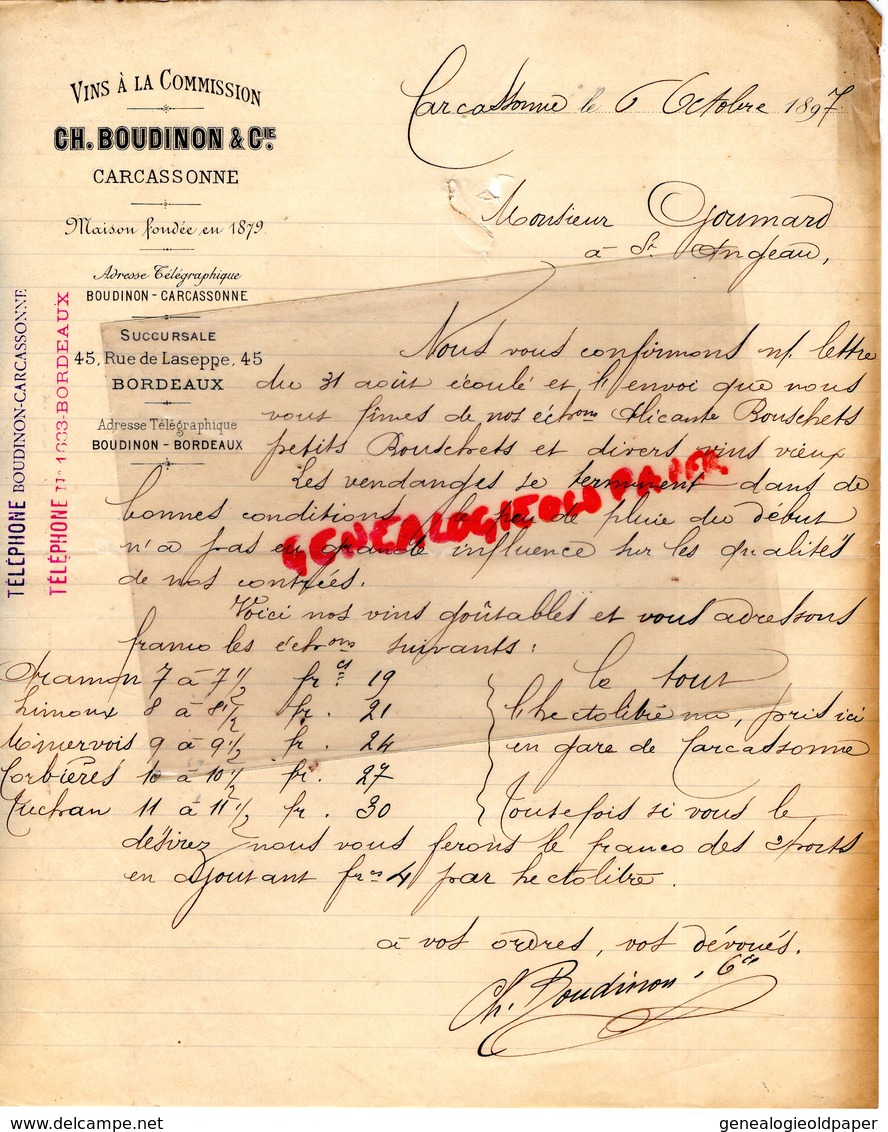 VINS À LA COMMISSION
CH. BOUDINON & CIE.
CARCASSONNE
Maison fondée en 1879
Adresse Télégraphique
BOUDINON - CARCASSONNE
SUCCURSALE
45, Rue de Laseppe, 45
BORDEAUX
Adresse Télégraphique
BOUDINON - BORDEAUX
TÉLÉPHONE BOUDINON-CARCASSONNE
TÉLÉPHONE No 1633-BORDEAUX
Carcassonne le 6 Octobre 1897.
Monsieur Goumard
à St. Angeau,
Nous vous confirmons n/. lettre
du 31 août écoulé et l'envoi que nous
vous fîmes de nos échons Alicante Bouschets
petits Bouschets et divers vins vieux
Les vendanges se terminent dans de
bonnes conditions, le peu de pluie du début
n'a pas eu grande influence sur les qualités
de nos contrées.
Voici nos vins goûtables et vous adressons
franco les échons suivants :
Aramon 7 à 7 1/2 fr. cs 19
Limoux 8 à 8 1/2 fr. 21
Minervois 9 à 9 1/2 fr. 24
Corbières 10 à 10 1/2 fr. 27
Tuchan 11 à 11 1/2 fr. 30
le tout
l'hectolitre nu, pris ici
en gare de Carcassonne
Toutefois si vous le
désirez nous vous ferons le franco des ports
en ajoutant frs 4 par hectolitre.
à vos ordres, vos dévoués.
Ch. Boudinon & Cie
GENEALOGIEOLDPAPER
genealogieoldpaper